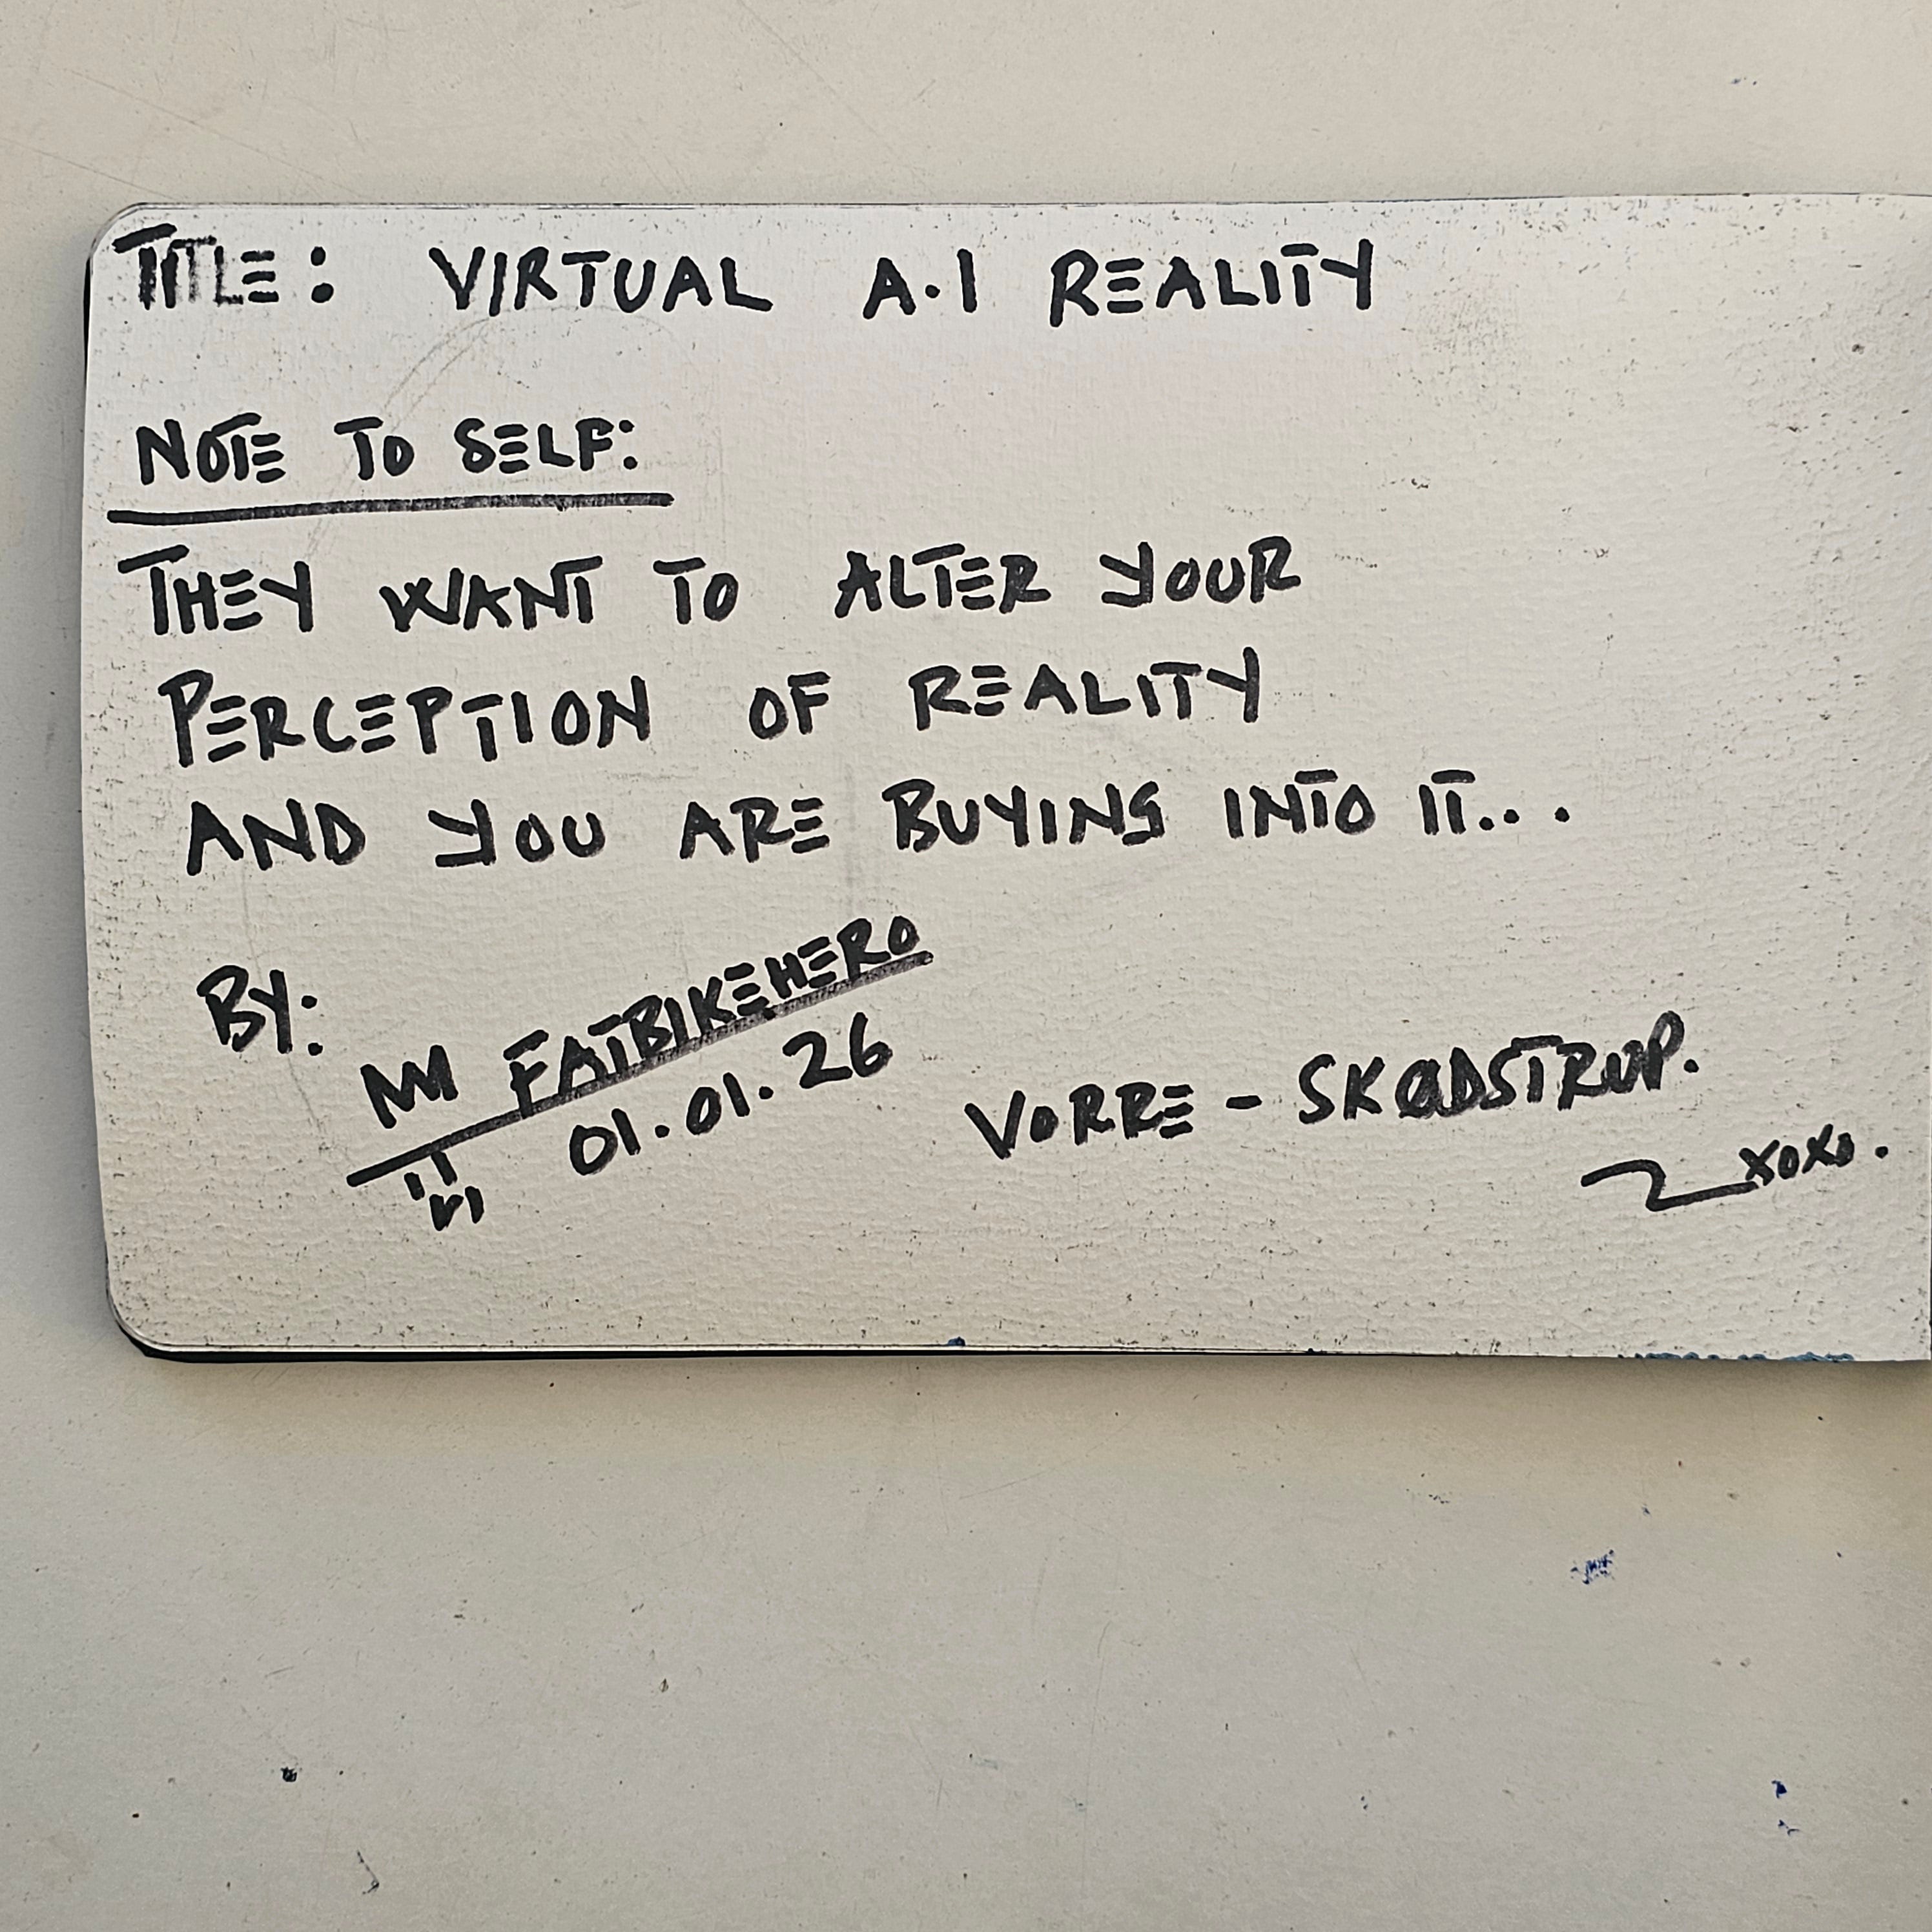 TITLE: VIRTUAL A.I REALITY
NOTE TO SELF:
THEY WANT TO ALTER YOUR
PERCEPTION OF REALITY
AND YOU ARE BUYING INTO IT...
BY:
FATBIKEHERO
01.01.26
VORRE - SKØDSTRUP.
xoxo.